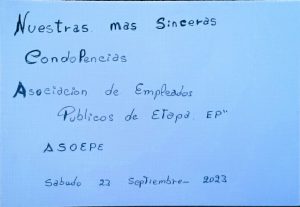 Nuestras mas Sinceras
Condolencias
Asociacion de Empleados
Publicos de Etapa EP"
ASOEPE
Sabado 23 Septiembre 2023